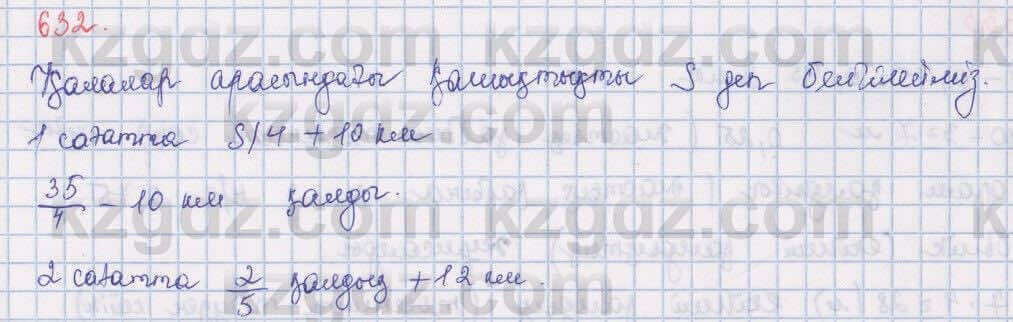 632.
Қалалар арасындағы қашықтықты S деп белгілейміз.
1 сағатта S/4 + 10 км
35/4 - 10 км қалды.
2 сағатта 2/5 қалдық + 12 км.
kzgdz.com kzgdz.com
kzgdz.com kzgdz.com
kzgdz.com kzgdz.com